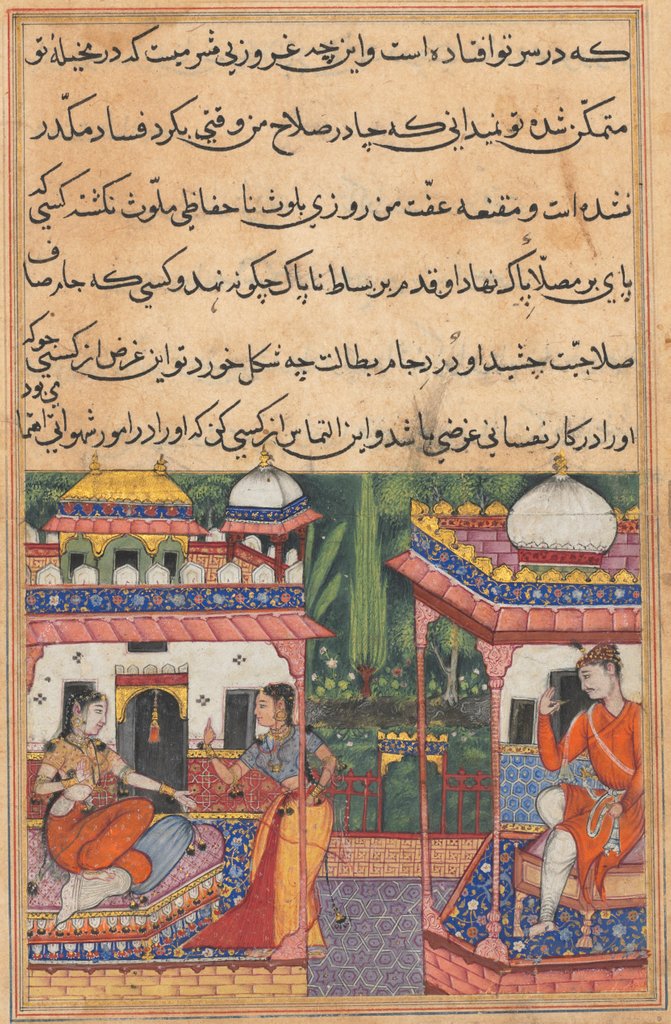 که در سر تو افتاده است و این چه غروزیی مترمیست که در مخیلهٔ تو
متمکّن شده تو نمیدانی که چادر صلاح من وقتی بکرد فساد مکدّر
نشده است و مقنعه عفّت من روزی بلوث ناحفاظی ملوّث نکشته کسی که
پای بر مصلّا پاک نهاد او قدم بر بساط ناپاک چکونه نهد و کسی که جام صاف
صلاحیّت چشید او دُرد جام بطالت چه شکل خورد تو این غرض از کسی جو که
اورا در کار نفسانی غرضی باشد و این التماس از کسی کن که اورا در امور شهوانی اهتما
می بود